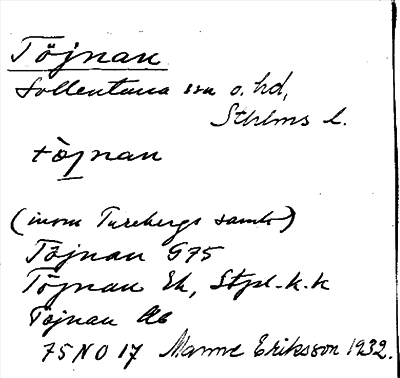 Töjnan
Sollentuna sn o. hd,
Sthlms l.
tòjnan
(inom Turebergs samh)
Töjnan G75
Töjnan Ek, Stpl-k.k
Töjnan Ab
75 NO 17 Manne Eriksson 1932.